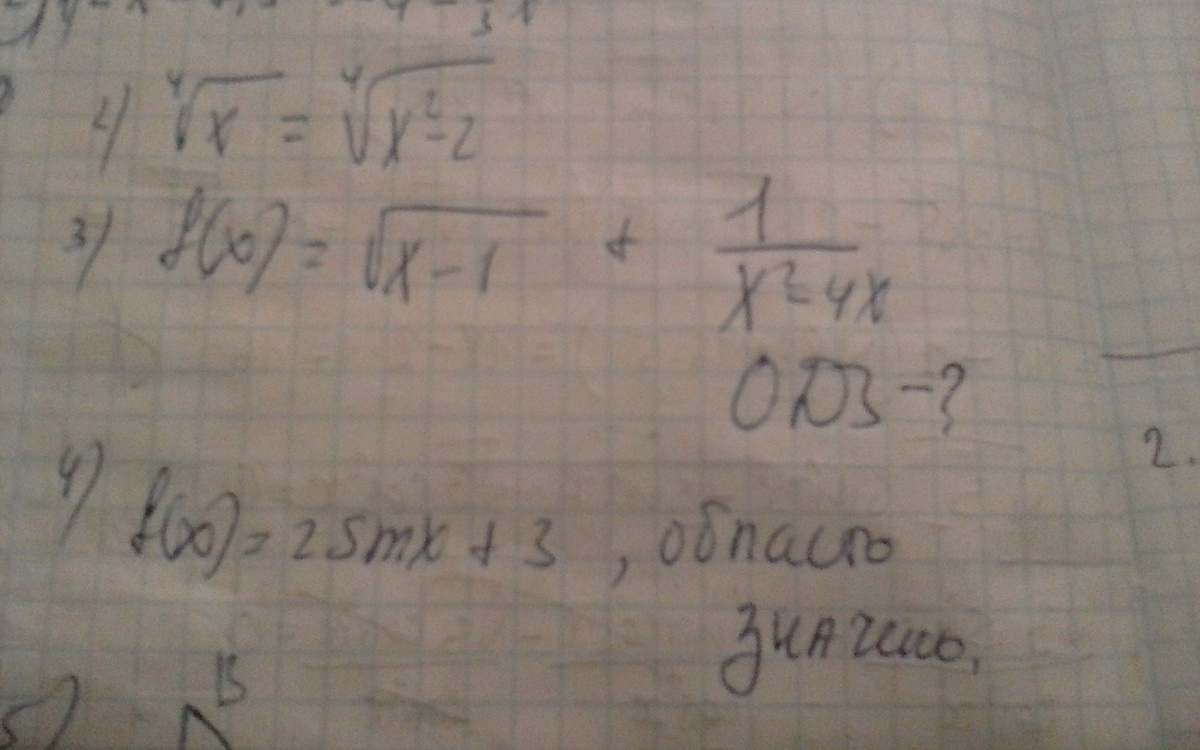 2) ⁴√x = ⁴√(x²-2)
3) f(x) = √(x-1) + 1/(x²-4x)
ОДЗ-?
4) f(x) = 2 Sinx + 3 , область
значень.
5) B
2.